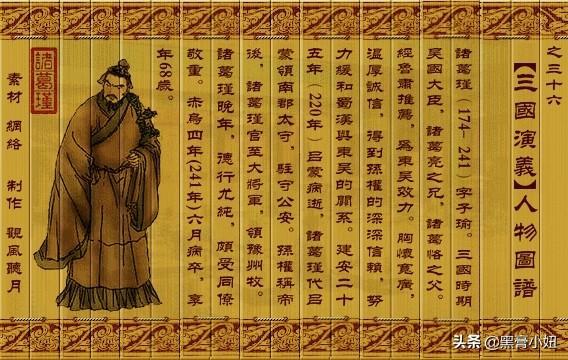 之三十六
【三國演義】人物圖譜
諸葛瑾（174—241）字子瑜。三國時期
吳國大臣，諸葛亮之兄，諸葛恪之父。
經魯肅推薦，爲東吳效力。胸懷寬廣，
溫厚誠信，得到孫權的深深信賴，努
力緩和蜀漢與東吳的關系。建安二十
五年（220年）呂蒙病逝，諸葛瑾代呂
蒙領南郡太守，駐守公安。孫權稱帝
後，諸葛瑾官至大將軍，領豫州牧。
諸葛瑾晚年，德行尤純，頗受同僚
敬重。赤烏四年(241年)六月病卒，享
年68歲。
諸葛瑾
素材 網絡 制作 觀風聽月
头条 @黑骨小妞